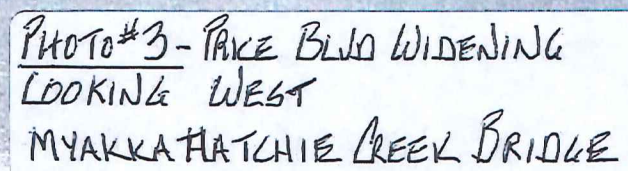 PHOTO #3 - PRICE BLVD WIDENING
LOOKING WEST
MYAKKAHATCHIE CREEK BRIDGE